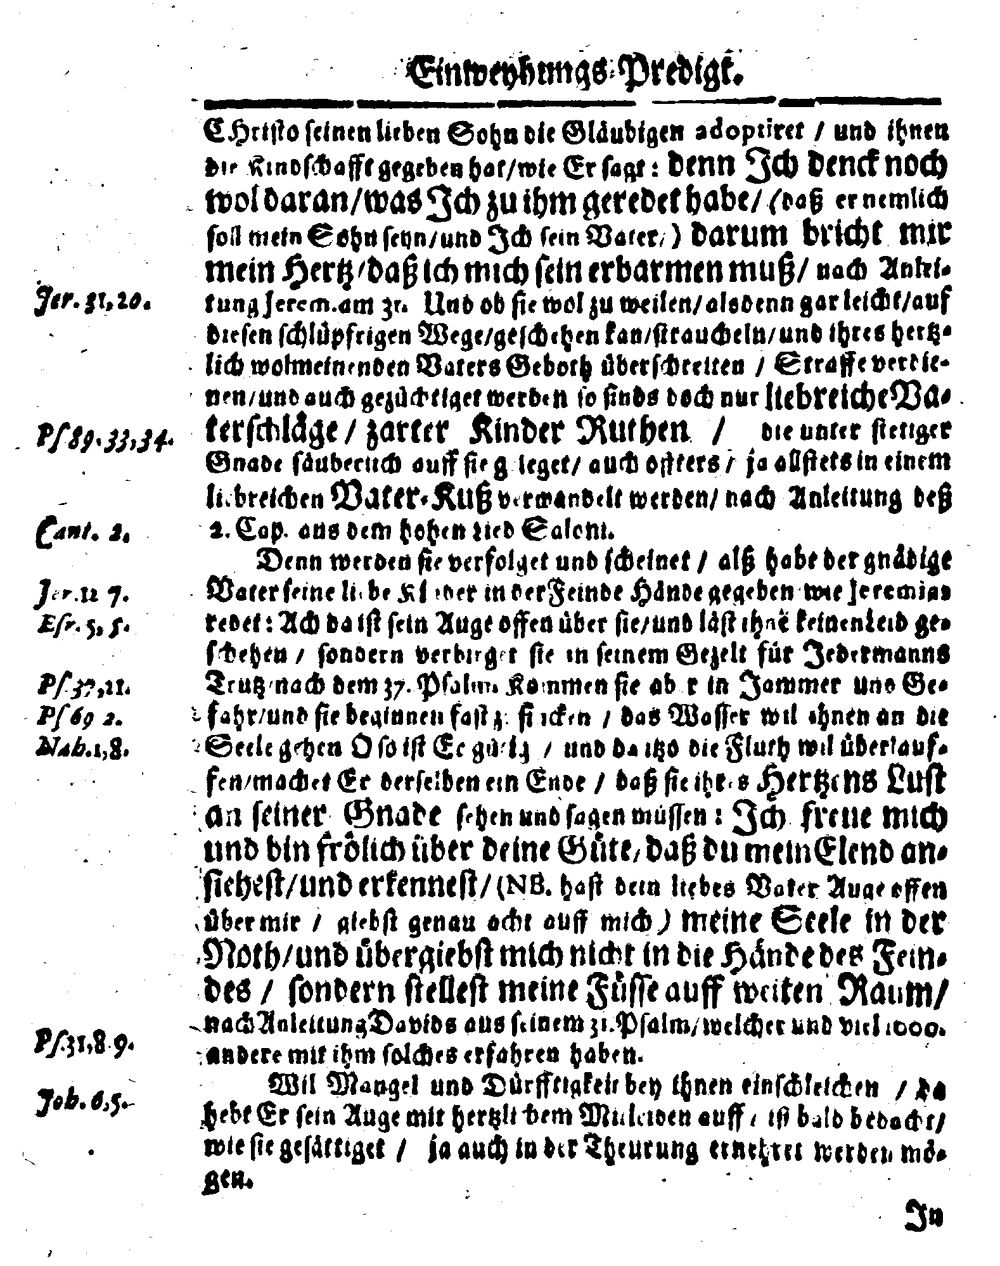 Einweyhungs-Predigt.
CHristo seinen lieben Sohn die Gläubigen adoptiret / und ihnen
die Kindschafft gegeben hat/wie Er sagt: denn Ich denck noch
wol daran/was Ich zu ihm geredet habe/ (daß er nemlich
soll mein Sohn seyn/und Ich sein Vater/) darum bricht mir
mein Hertz/daß ich mich sein erbarmen muß/ nach Anlei-
Jer. 31,20.
tung Jerem. am 31. Und ob sie wol zu weilen/als denn gar leicht/auf
diesen schlüpfrigen Wege/geschehen kan/straucheln/und ihres hertz-
lich wolmeinenden Vaters Geboth überschreiten / Straffe verdie-
nen/und auch gezüchtiget werden so sinds doch nur liebreiche Va-
Ps 89. 33,34.
terschläge / zarter Kinder Ruthen / die unter stetiger
Gnade säuberlich auff sie geleget/ auch öffters / ja allstets in einem
liebreichen Vater-Kuß verwandelt werden/ nach Anleitung deß
Cant. 2.
2. Cap. aus dem hohen Lied Salom.
Denn werden sie verfolget und scheinet / alß habe der gnädige
Jer. 12 7.
Vater seine liebe Kinder in der Feinde Hände gegeben wie Jeremias
Esr. 5, 5.
redet: Ach da ist sein Auge offen über sie/und läst ihnẽ kein Leid ge-
schehen / sondern verbirget sie in seinem Gezelt für Jedermanns
Ps. 37,21.
Trutz nach dem 37. Psalm. Kommen sie aber in Jammer und Ge-
Ps 69 2.
fahr/und sie beginnen fast zu sincken / das Wasser wil ihnen an die
Nah. 1,8.
Seele gehen O so ist Er gütig / und da itzo die Fluth wil überlauf-
fen/machet Er derselben ein Ende / daß sie ihres Hertzens Lust
an seiner Gnade sehen und sagen müssen: Ich freue mich
und bin frölich über deine Güte/ daß du mein Elend an-
siehest/und erkennest/(NB. hast dein liebes Vater Auge offen
über mir / giebst genau acht auff mich) meine Seele in der
Noth/und übergiebst mich nicht in die Hände des Fein-
des / sondern stellest meine Füsse auff weiten Raum/
nach Anleitung Davids aus seinem 31. Psalm/welcher und viel 1000.
Ps. 31,8 9.
andere mit ihm solches erfahren haben.
Wil Mangel und Dürfftigkeit bey ihnen einschleichen / da
Joh. 6,5.
hebt Er sein Auge mit hertzlichem Mitleiden auff / ist bald bedacht/
wie sie gesättiget / ja auch in der Theurung ernehret werden mö-
gen.
In